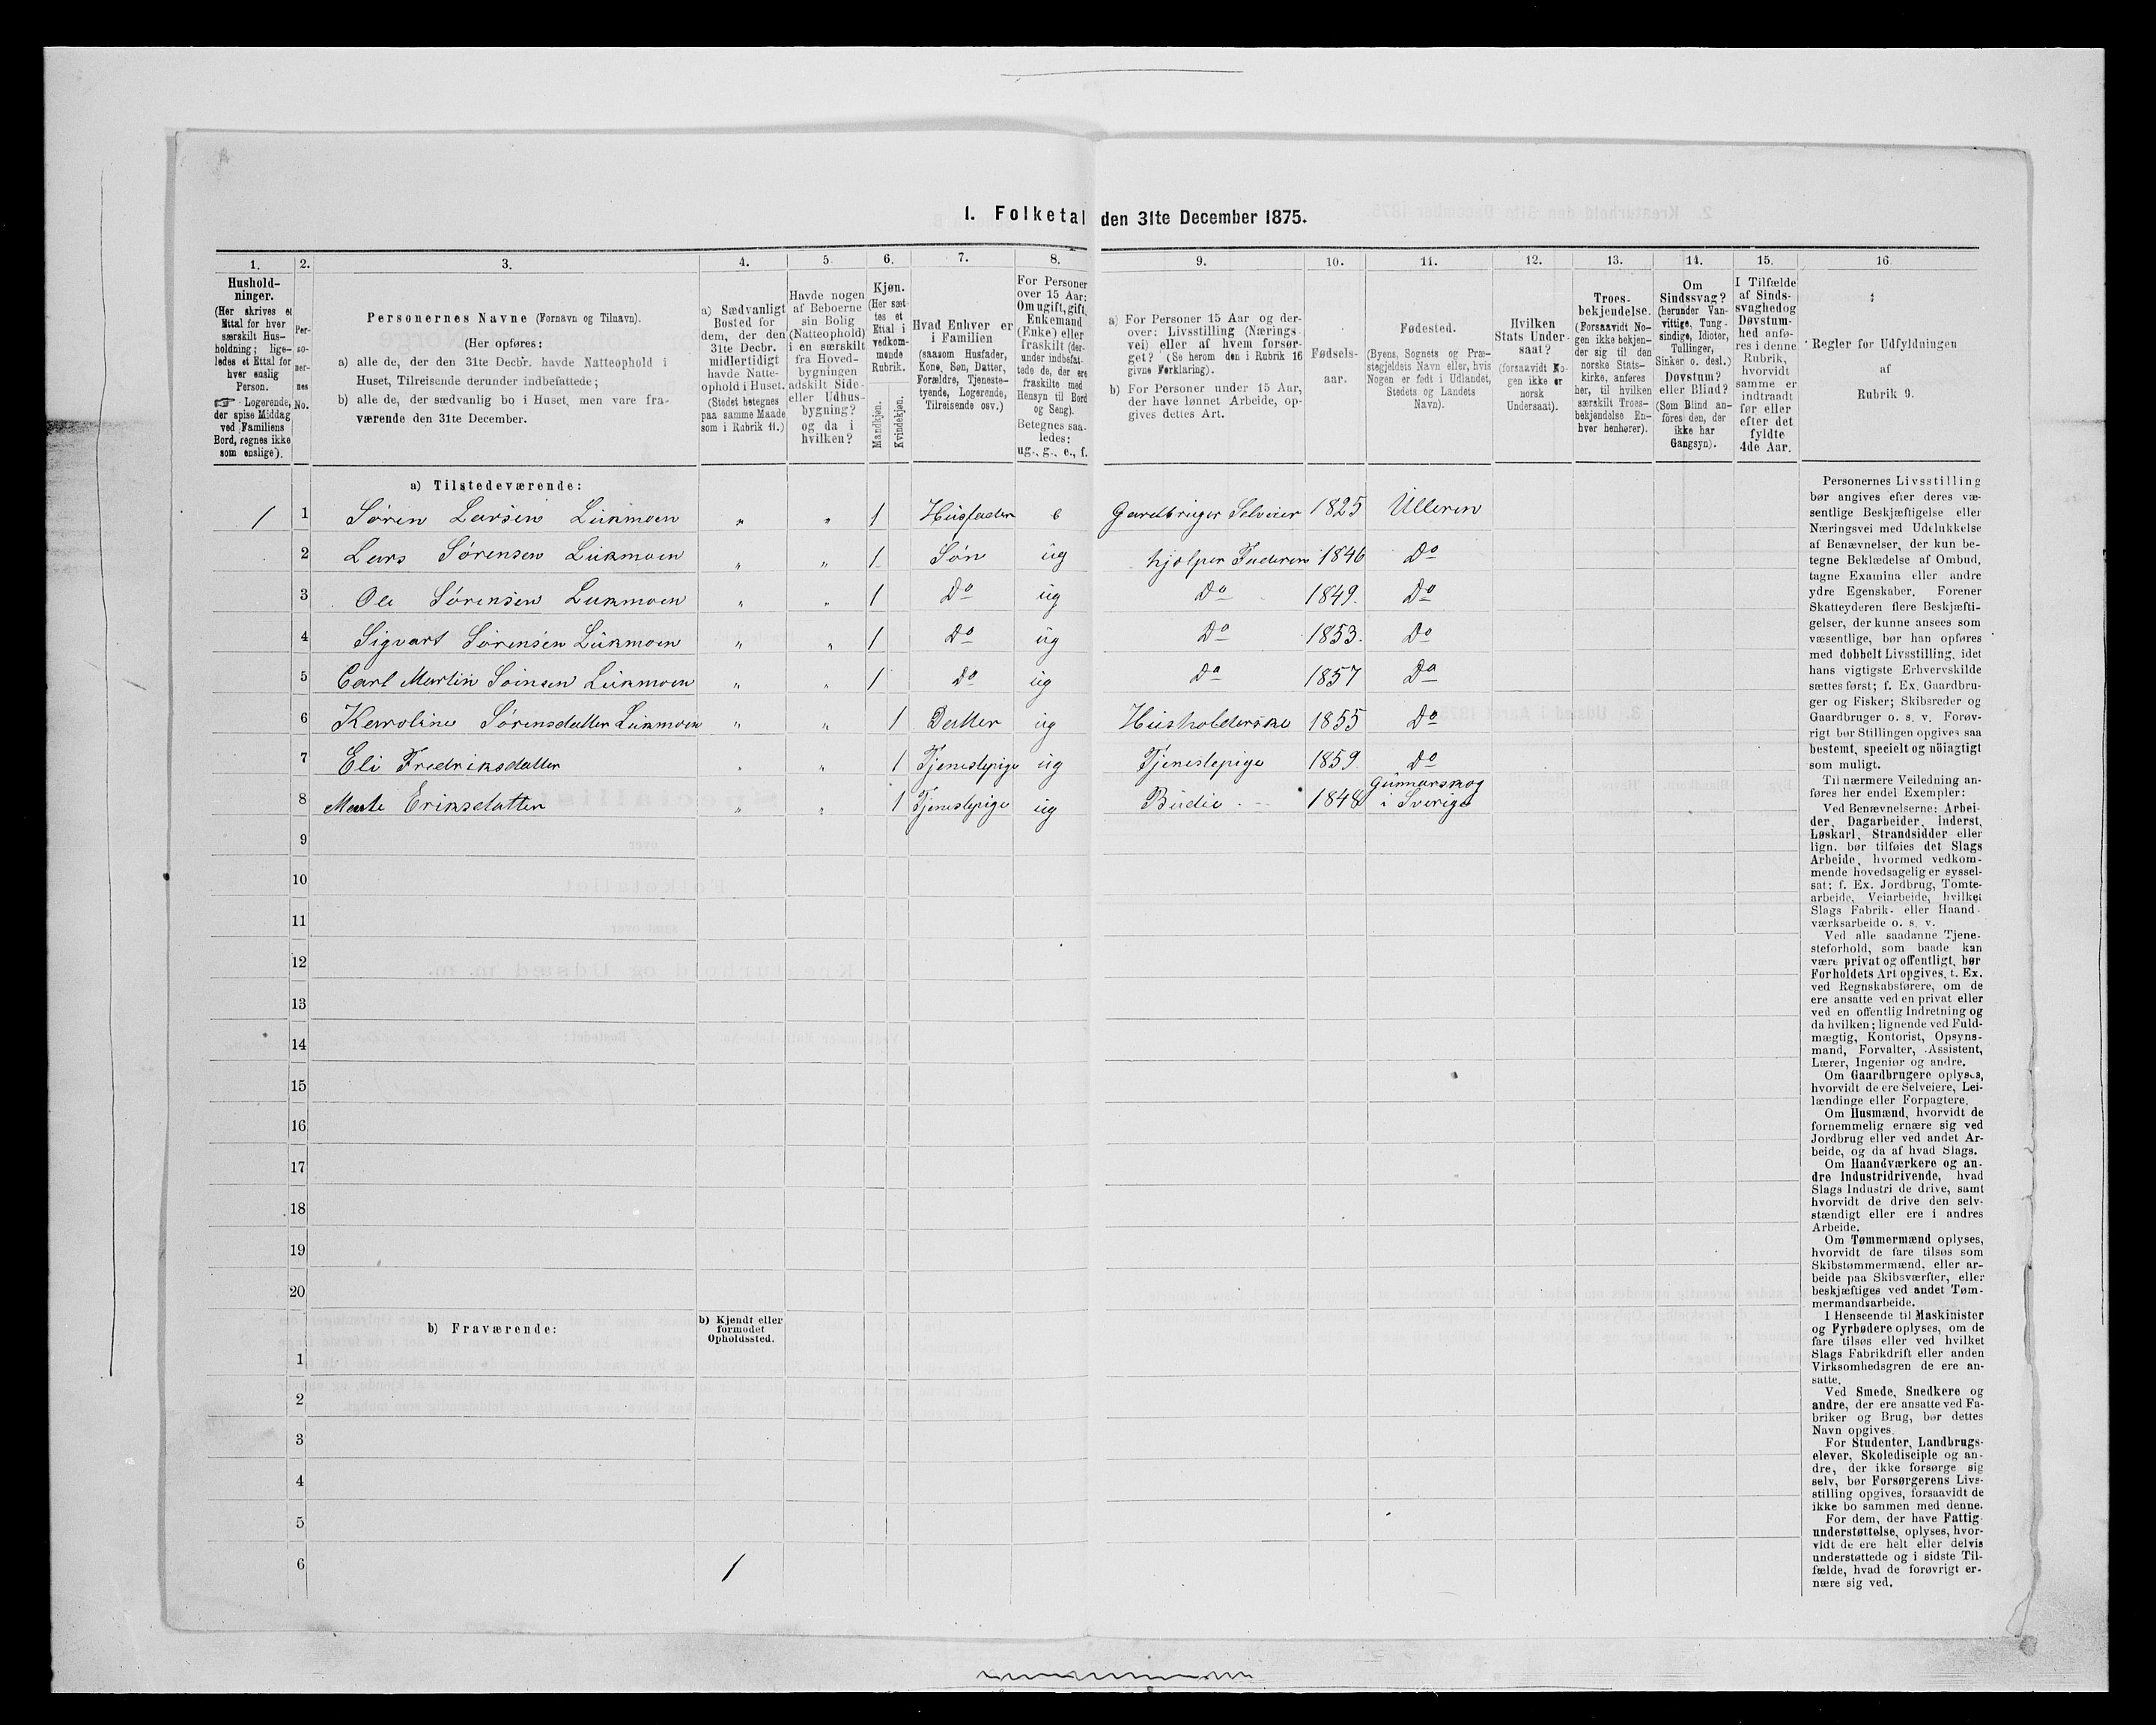 1. Folketal den 31te December 1875.
1.
2.
3.
4.
5
6.
7.
8.
9.
10.
11.
12.
13.
14.
15.
16
Hushold-
ninger.
(Her skrives et
Ettal for hver
særskilt Hus-
holdning; lige-
ledes et Ettal for
hver enslig
Person.
☞ Logerende,
der spise Middag
ved Familiens
Bord, regnes ikke
som enslige).
Per-
so-
ner-
nes
No.
Personernes Navne (Fornavn og Tilnavn).
(Her opføres:
a) alle de, der den 31te Decbr. havde Natteophold i
Huset, Tilreisende derunder indbefattede;
b) alle de, der sædvanlig bo i Huset, men vare fra-
værende den 31te December.
a) Sædvanligt
Bosted for
dem, der den
31te Decbr.
midlertidigt
havde Natte-
ophold i Huset.
(Stedet betegnes
paa samme Maade
som i Rubrik 11.)
Havde nogen
af Beboerne
sin Bolig
(Natteophold)
i en særskilt
fra Hoved-
bygningen
adskilt Side-
eller Udhus-
bygning?
og da i
hvilken?
Kjøn.
(Her sæt-
tes et
Ettal i
vedkom-
mende
Rubrik.
Mandkjøn.
Kvindekjøn.
Hvad Enhver er
i Familien
(saasom Husfader,
Kone, Søn, Datter,
Forældre, Tjeneste-
tyende, Logerende,
Tilreisende osv.)
For Personer
over 15 Aar:
Om ugift, gift,
Enkemand
(Enke) eller
fraskilt (der-
under indbefat-
tede de, der ere
fraskilte med
Hensyn til Bord
og Seng).
Betegnes saa-
ledes:
ug., g., e., f.
a) For Personer 15 Aar og der-
over: Livsstilling (Nærings
vei) eller af hvem forsør-
get? (Se herom den i Rubrik 16
givne Forklaring).
b) For Personer under 15 Aar,
der have lønnet Arbeide, op-
gives dettes Art.
Fødsels-
aar.
Fødested.
(Byens, Sognets og Præ-
stegjeldets Navn eller, hvis
Nogen er født i Udlandet,
Stedets og Landets
Navn).
Hvilken
Stats Under-
saat?
(forsaavidt No-
gen ikke er
norsk
Undersaat).
Troes-
bekjendelse.
(Forsaavidt No-
gen ikke bekjen-
der sig til den
norske Stats-
kirke, anføres
her, til hvilken
særskilt Troes-
bekjendelse En-
hver henhører).
Om
Sindssvag?
(herunder Van-
vittige, Tung-
sindige, Idioter,
Tullinger,
Sinker o. desl.)
Døvstum?
eller Blind?
(Som Blind an-
føres den, der
ikke har
Gangsyn).
I Tilfælde
af Sinds-
svaghedog
Døvstum-
hed anfø-
res i denne
Rubrik,
hvorvidt
samme er
indtraadt
før eller
efter det
fyldte
4de Aar.
Regler for Udfyldningen
af
Rubrik 9.
a) Tilstedeværende:
1 1 Søren Larsen Lukmoen " " 1 Husfader e Gardbruger Selveier 1825 Ulleren
2 Lars Sørensen Lukmoen " " 1 Søn ug hjelper Faderen 1846 Do
3 Ole Sørensen Lukmoen " " 1 Do ug Do 1849 Do
4 Sigvart Sørensen Lukmoen " " 1 Do ug Do 1853 Do
5 Carl Martin Sørnsen Lukmoen " " 1 Do ug Do 1857 Do
6 Karoline Sørensdatter Lukmoen " " 1 Datter ug Husholderske 1855 Do
7 Eli Fredriksdatter " " 1 Tjenestepige ug Tjenestepige 1859 Do
8 Marte Eriksdatter " " 1 Tjenestepige ug Budeie 1848 Gunnarskog
i Sverige
9
10
11
12
13
14
15
16
17
18
19
20
b) Fraværende:
b) Kjendt eller
formodet
Opholdssted.
1
2
3
4
5
6
1
Personernes Livsstilling
bør angives efter deres væ-
sentlige Beskjæftigelse eller
Næringsvei med Udelukkelse
af Benævnelser, der kun be-
tegne Beklædelse af Ombud,
tagne Examina eller andre
ydre Egenskaber. Forener
Skatteyderen flere Beskjæfti-
gelser, der kunne ansees som
væsentlige, bør han opføres
med dobbelt Livsstilling, idet
hans vigtigste Erhvervskilde
sættes først; f. Ex. Gaardbru-
ger og Fisker; Skibsreder og
Gaardbruger o. s. v. Forøv-
rigt bør Stillingen opgives saa
bestemt, specielt og nöiagtigt
som muligt.
Til nærmere Veiledning an-
føres her endel Exempler:
Ved Benævnelserne: Arbei-
der, Dagarbeider, Inderst,
Løskarl, Strandsidder eller
lign. bør tilføies det Slags
Arbeide, hvormed vedkom-
mende hovedsagelig er syssel-
sat; f. Ex. Jordbrug, Tomte-
arbeide, Veiarbeide, hvilket
Slags Fabrik- eller Haand-
værksarbeide o. s. v.
Ved alle saadanne Tjene-
steforhold, som baade kan
være privat og offentligt, bør
Forholdets Art opgives, t. Ex.
ved Regnskabsførere, om de
ere ansatte ved en privat eller
ved en offentlig Indretning og
da hvilken; lignende ved Fuld-
mægtig, Kontorist, Opsyns-
mand, Forvalter, Assistent,
Lærer, Ingeniør og andre.
Om Gaardbrugere oplyses,
hvorvidt de ere Selveiere, Lei-
lændinge eller Forpagtere.
Om Husmænd, hvorvidt de
fornemmelig ernære sig ved
Jordbrug eller ved andet Ar-
beide, og da af hvad Slags.
Om Haandværkere og an-
dre Industridrivende, hvad
Slags Industri de drive, samt
hvorvidt de drive den selv-
stændigt eller ere i andres
Arbeide.
Om Tømmermænd oplyses,
hvorvidt de fare tilsøs som
Skibstømmermænd, eller ar-
beide paa Skibsværfter, eller
beskjæftiges ved andet Tøm-
mermandsarbeide.
I Henseende til Maskinister
og Fyrbødere oplyses, om de
fare tilsøs eller ved hvilket
Slags Fabrikdrift eller anden
Virksomhedsgren de ere an-
satte.
Ved Smede, Snedkere og
andre, der ere ansatte ved Fa-
briker og Brug, bør dettes
Navn opgives.
For Studenter, Landbrugs-
elever, Skoledisciple og an-
dre, der ikke forsørge sig
selv, bør Forsørgerens Livs-
stilling opgives, forsaavidt de
ikke bo sammen med denne.
For dem, der have Fattig
understøttelse, oplyses, hvor-
vidt de ere helt eller delvis
understøttede og i sidste Til-
fælde, hvad de forøvrigt er-
nære sig ved.